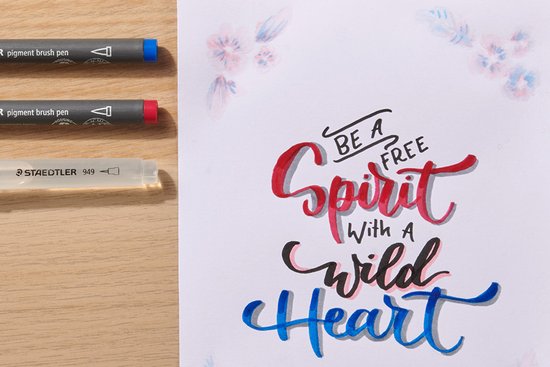 R pigment brush pen
R pigment brush pen
STAEDTLER 949
BE A
FREE
Spirit
With A
Wild
Heart